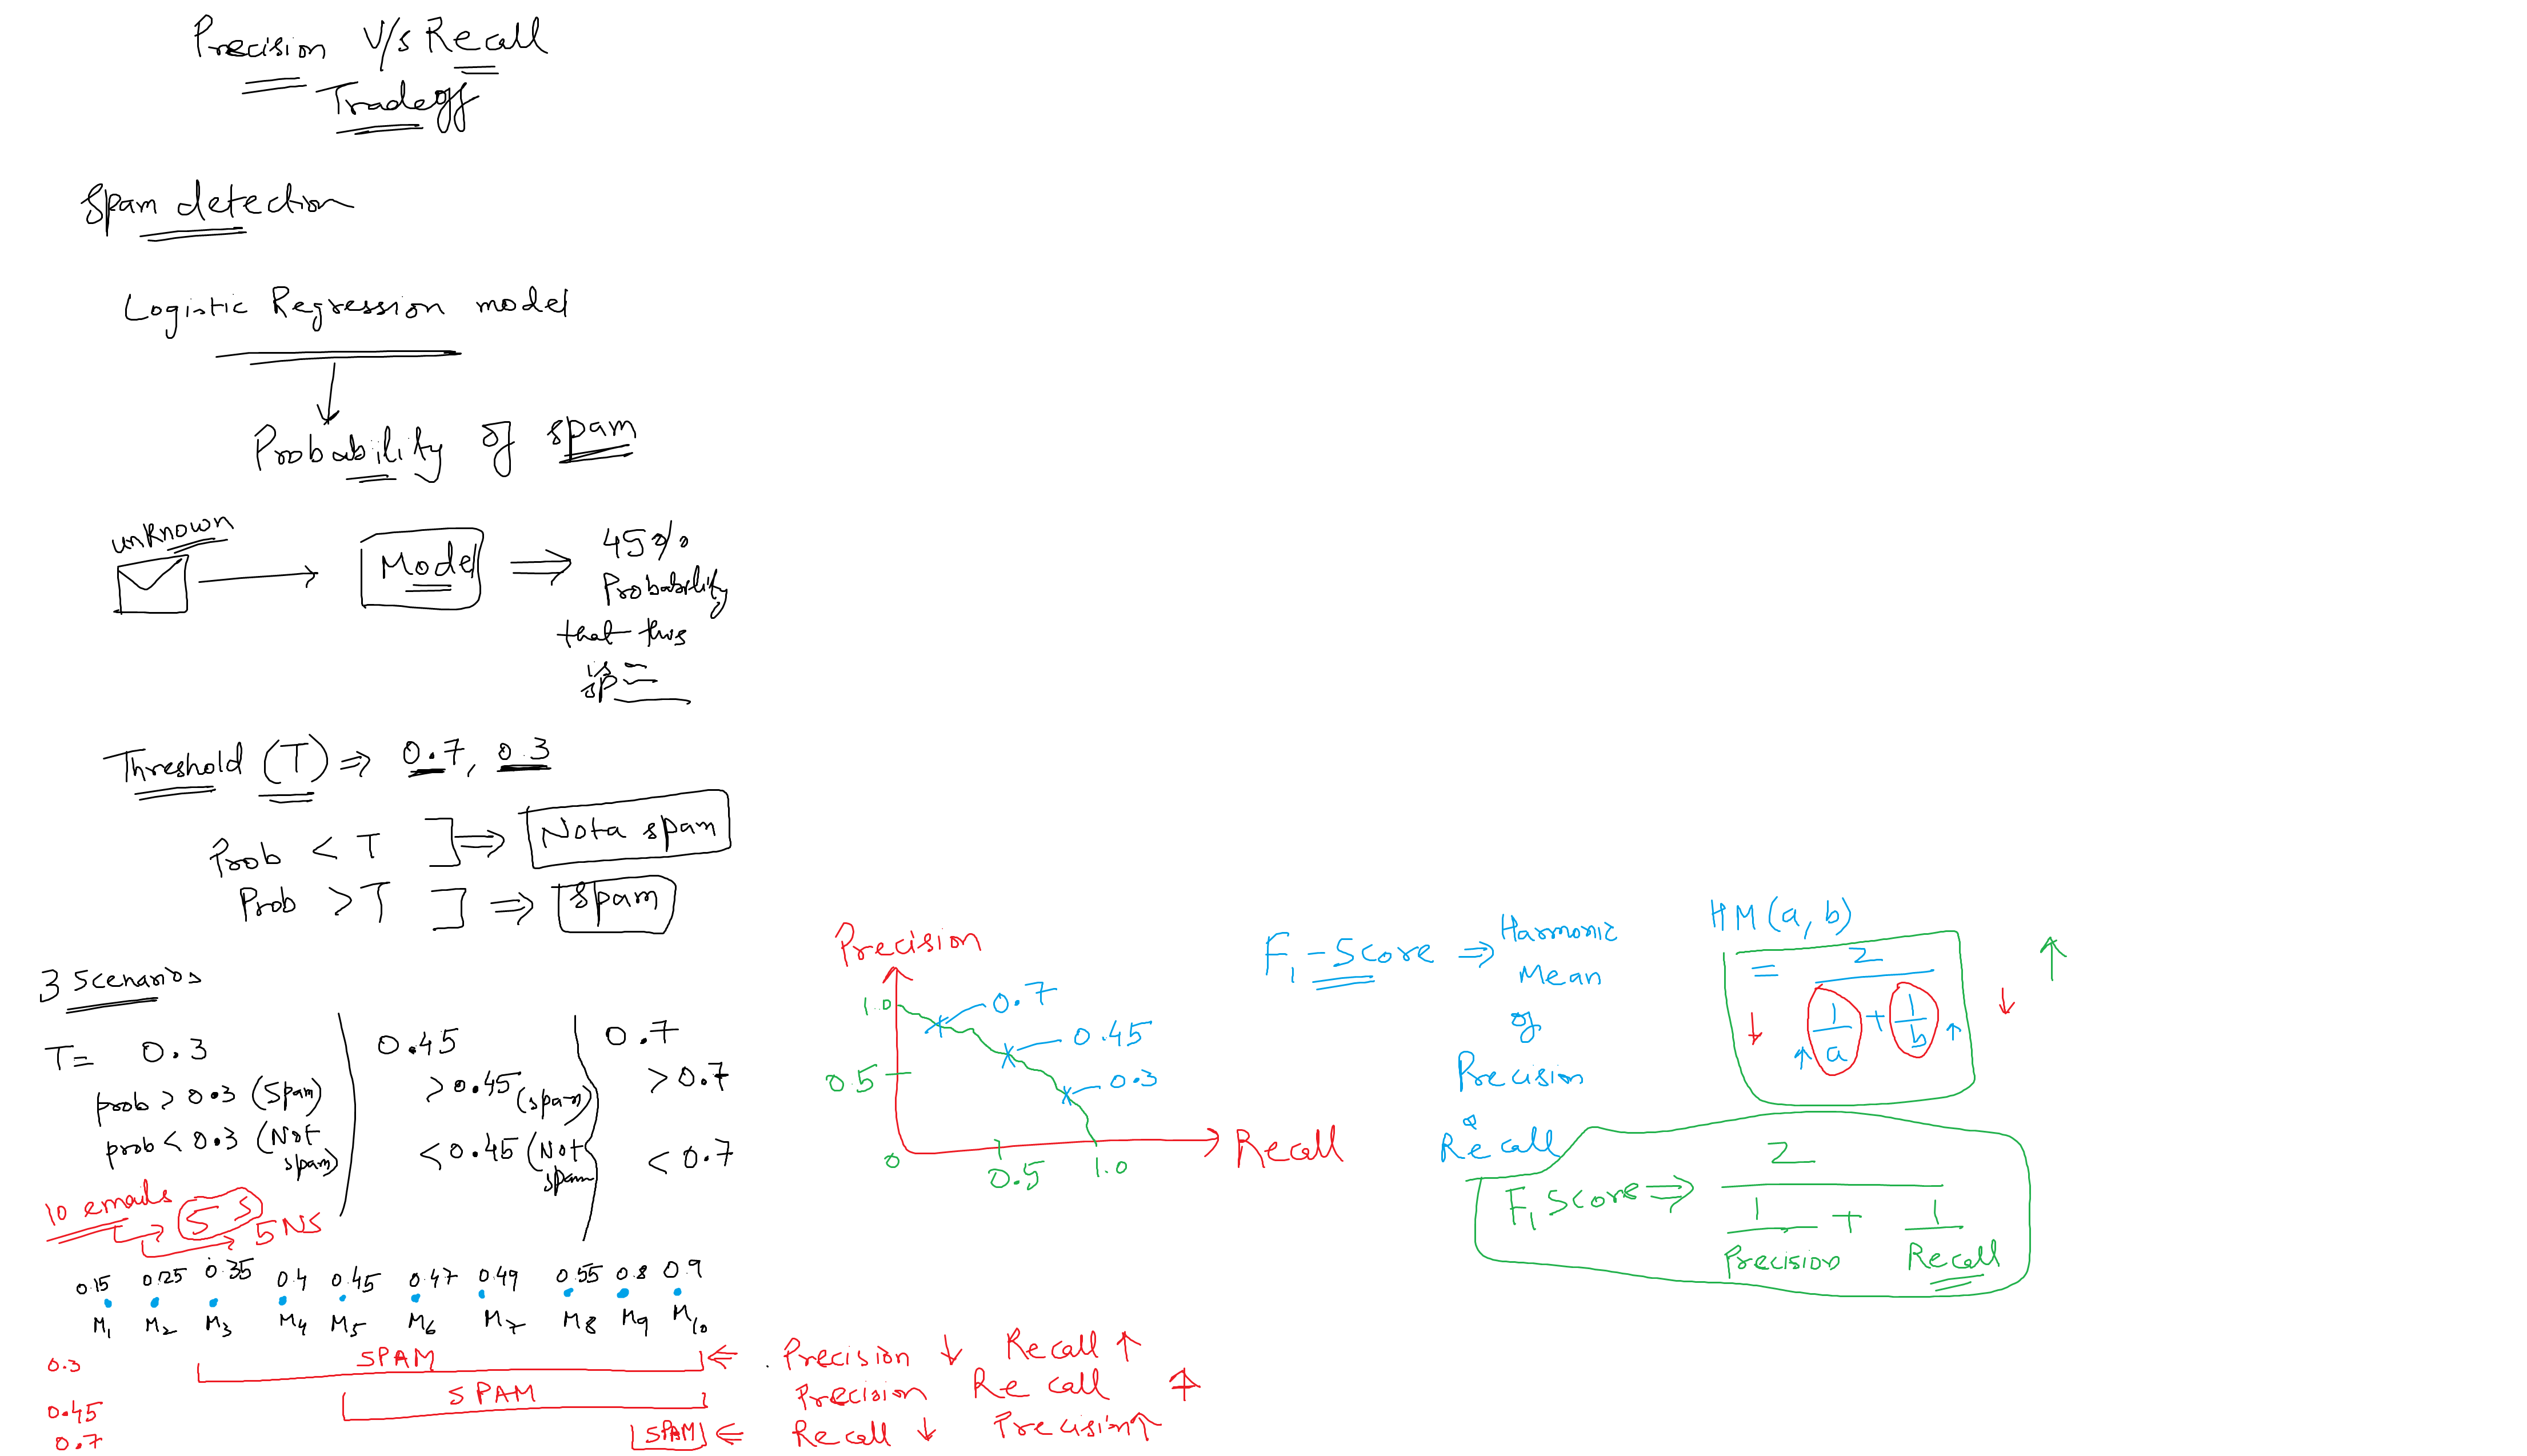 Precision V/s Recall
Tradeoff
Spam detection
Logistic Regression model
Probability of spam
unknown
Model
45%
Probability
that this
is
sp
Threshold (T) ⇒ 0.7, 0.3
Prob < T ] ⇒ Not a spam
Prob > T ] ⇒ Spam
3 Scenarios
T = 0.3
prob > 0.3 (Spam)
prob < 0.3 (Not
spam)
0.45
> 0.45 (spam)
< 0.45 (Not
spam
0.7
> 0.7
< 0.7
10 emails → 5 S
→ 5 NS
0.15 0.25 0.35 0.4 0.45 0.47 0.49 0.55 0.8 0.9
M1 M2 M3 M4 M5 M6 M7 M8 M9 M10
0.3 SPAM ⇐ Precision ↓ Recall ↑
0.45 SPAM Precision Recall
0.7 SPAM ⇐ Recall ↓ Precision ↑
Precision
1.0
0.7
0.45
0.5
0.3
0
0.5
1.0
Recall
F1 - Score ⇒ Harmonic
Mean
of
Precision
&
Recall
HM (a, b)
= 2
↓ ↑ 1/a + 1/b ↑
↓ ↑
F1 Score ⇒ 2
1 + 1
Precision Recall